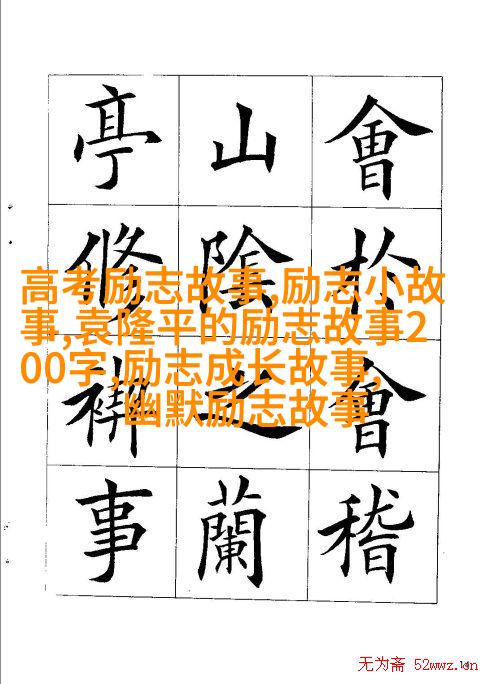 會於會稽
山陰之蘭
亭脩禊事
高考励志故事,励志小故
事,袁隆平的励志故事2
00字,励志成长故事,
幽默励志故事
无为斋 52wwz.cn